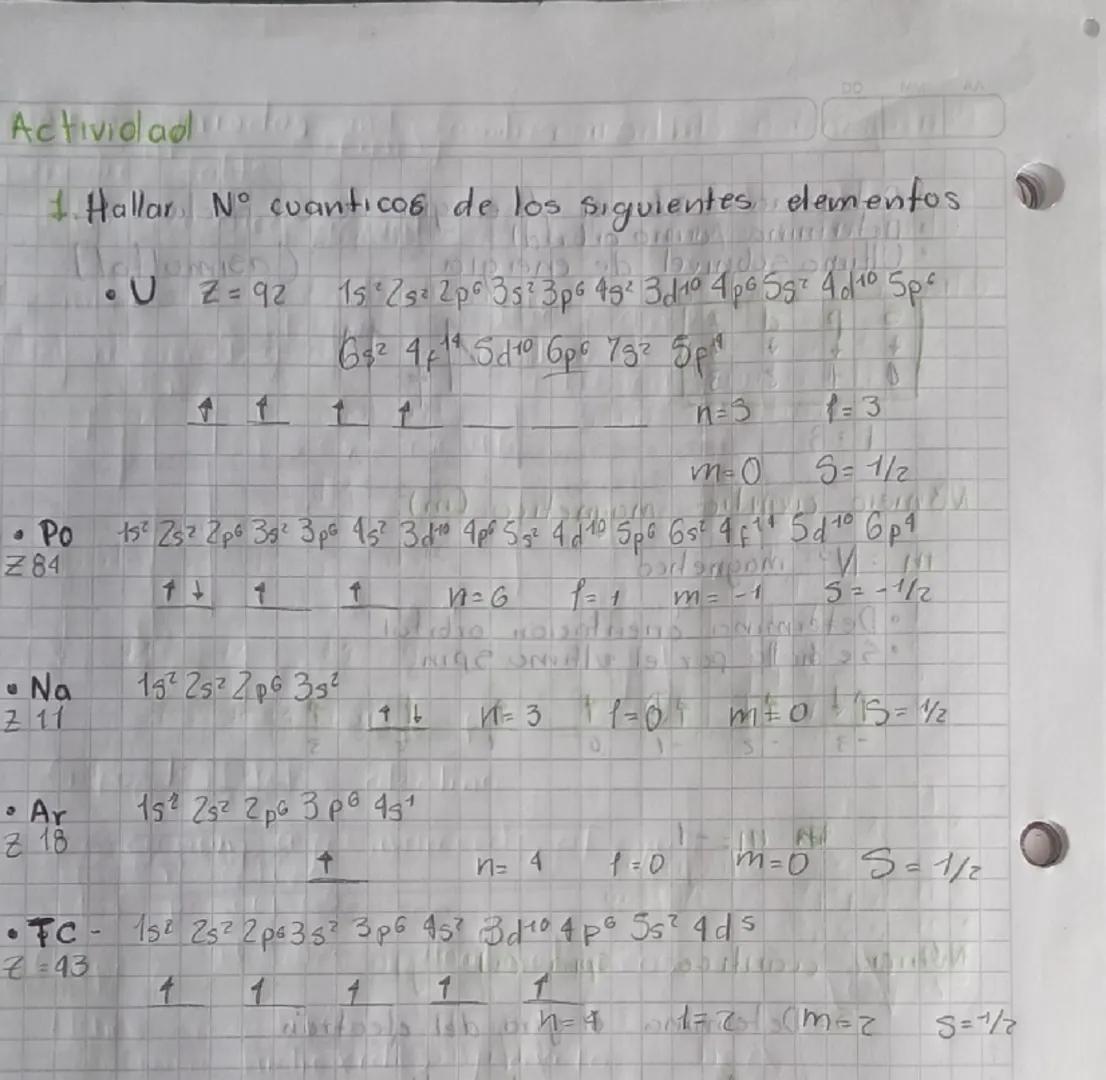 DD MM AA
Actividad
1. Hallar N° cuanticos de los siguientes elementos
• U Z = 92 1s² 2s² 2p⁶ 3s² 3p⁶ 4s² 3d¹⁰ 4p⁶ 5s² 4d¹⁰ 5p⁶
6s² 4f¹⁴ 5d¹⁰ 6p⁶ 7s² 5p¹⁴
↑ ↑ ↑ ↑ n=3 l=3
m=0 S=1/2
• Po 1s² 2s² 2p⁶ 3s² 3p⁶ 4s² 3d¹⁰ 4p⁶ 5s² 4d¹⁰ 5p⁶ 6s² 4f¹⁴ 5d¹⁰ 6p⁴
Z 84
↑↓ ↑ ↑ n=6 l=1 m=-1 S=-1/2
• Na 1s² 2s² 2p⁶ 3s²
Z 11 ↑↓ n=3 l=0 m=0 S=1/2
• Ar 1s² 2s² 2p⁶ 3p⁶ 4s¹
Z 18
↑ n=4 l=0 m=0 S=1/2
• TC - 1s² 2s² 2p⁶ 3s² 3p⁶ 4s² 3d¹⁰ 4p⁶ 5s² 4d⁵
Z=43
↑ ↑ ↑ ↑ ↑
n=4 l=2 m=2 S=1/2